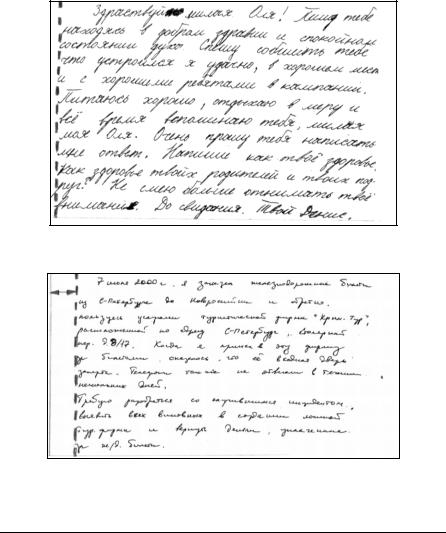 Здраствуй милая Оля! Пишу тебе
находясь в добром здравии и спокойном
состоянии духа. Спешу сообщить тебе
что устроился я удачно, в хорошем месте
и с хорошими ребятами в кампании.
Питаюсь хорошо, отдыхаю в меру и
всё время вспоминаю тебя, милая
моя Оля. Очень прошу тебя написать
мне ответ. Напиши как твоё здоровье.
Как здоровье твоих родителей и твоих под
руг. Не смею больше отнимать твоё
внимание. До свидания. Твой Денис.
7 июля 2000 г. я заказал железнодорожные билеты
из С-Петербурга до Новороссийска и обратно,
пользуясь услугами туристической фирмы "Крым-Тур",
расположенной по адресу С-Петербург,
пер. д. 8/17. Когда я пришел в эту фирму
за билетами, оказалось, что её входная дверь
заперта. Телефоны также не отвечают в течении
нескольких дней.
Требую разобраться со случившимся инцидентом,
выявить всех виновных в создании ложной
тур. фирмы и вернуть деньги, уплаченные
за ж/д. билеты.